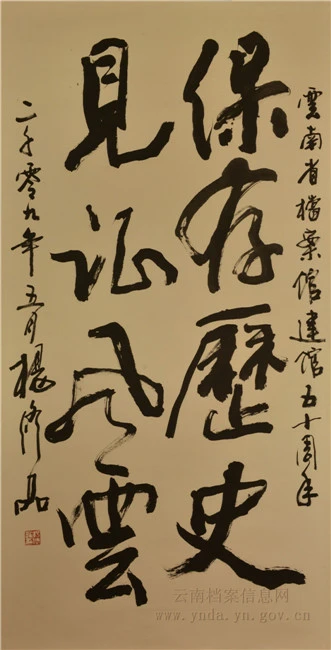 雲南省档案馆建馆五十周年
保存歷史
見证风雲
二千零九年五月 楊修品
云南档案信息网
www.ynda.yn.gov.cn